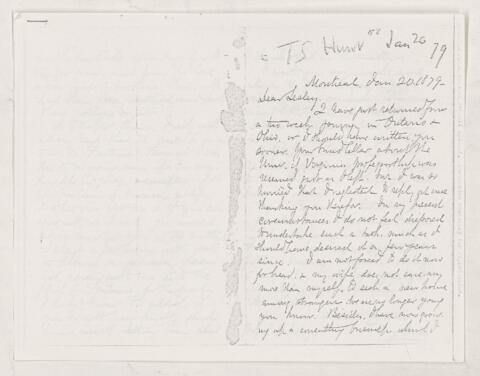 T S Hunt Jan 20 79
Montreal, Jan 20, 1879-
Dear Lesley,
I have just returned from
a two weeks journey in Ontario &
Ohio, or I should have written you
sooner. Your kind letter about the
Univ. of Virginia professorship was
received just as I left, but I was so
hurried that I neglected to reply at once
thanking you therefor. In my present
circumstances I do not feel disposed
to undertake such a task, much as I
should have desired it a few years
since. I am not forced to do it now
for bread, & my wife does not care any
more than myself to seek a new home
among strangers. We are no longer young
you know. Besides, I have now grow-
ing up a consulting business which I